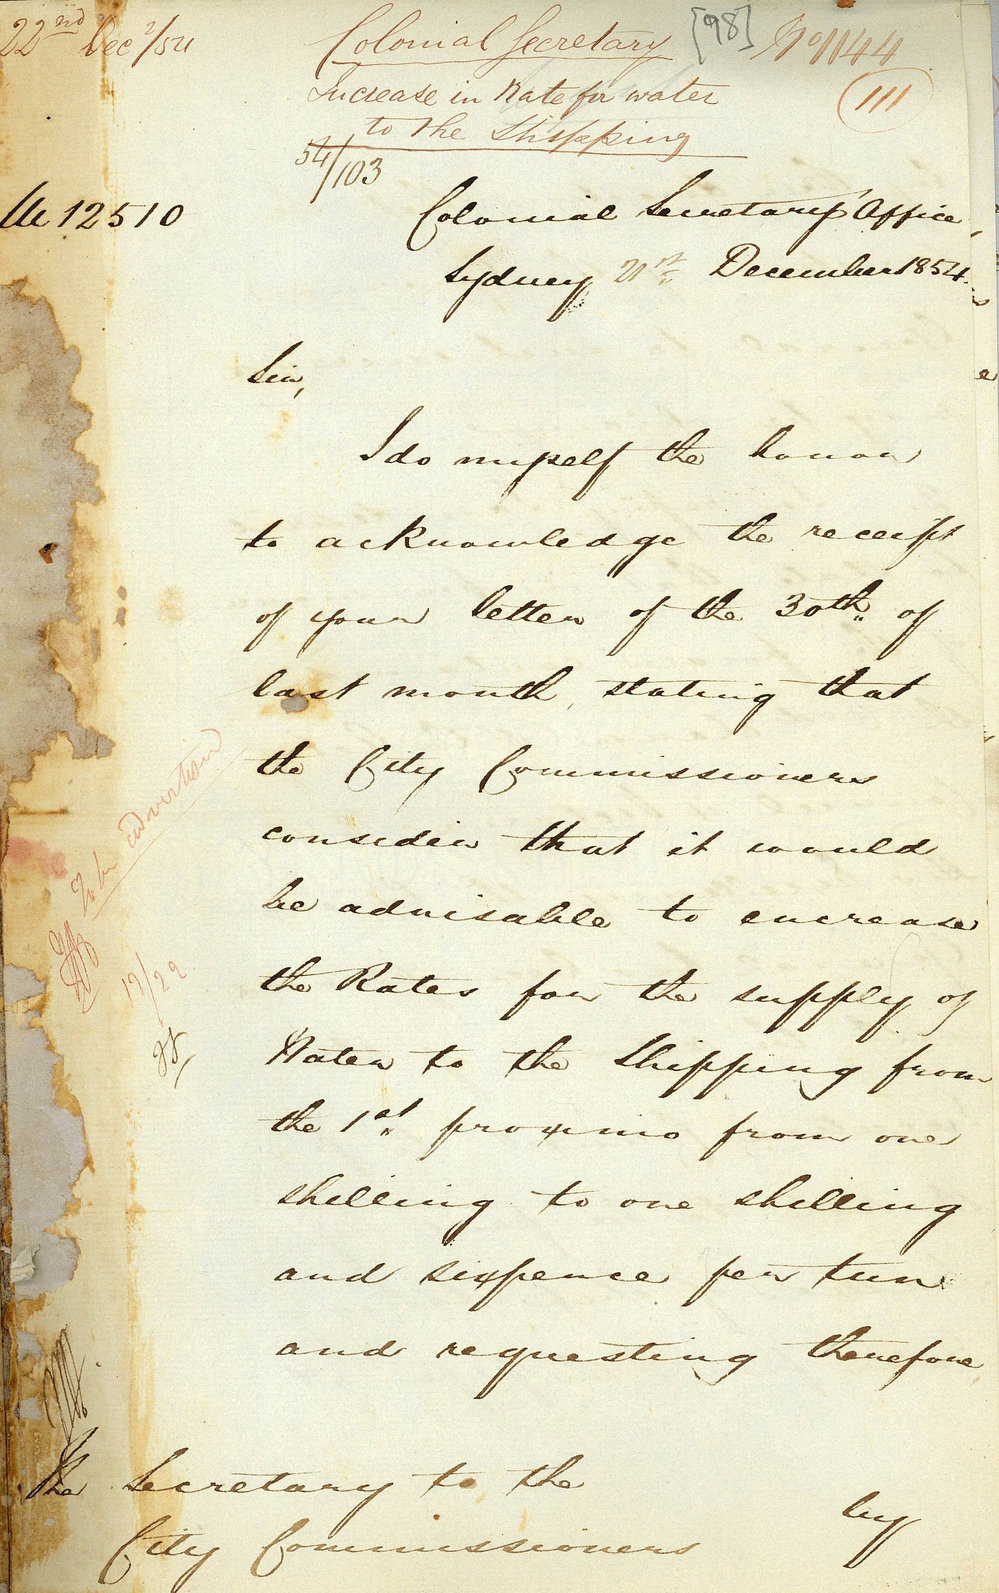 22nd Dec r/54
Colonial Secretary
[98]
No 1144
Increase in Rate for water
to the Shipping
111
54/103
12510
Colonial Secretarys Office,
Sydney 21st December 1854.
Sir,
I do myself the honor
to acknowledge the receipt
of your letter of the 30th of
last month, stating that
the City Commissioners
consider that it would
be advisable to encrease
the Rates for the supply of
Water to the Shipping from
the 1st proximo from one
shilling to one shilling
and sixpence per tun
and requesting therefore
To be advertised
19/29
The Secretary to the
City Commissioners
by